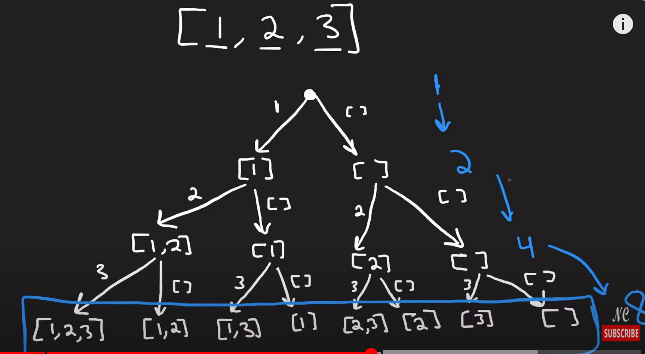 [1, 2, 3]
i
1 [] 1
[1] [] 2
2 [] 2 []
[1,2] [1] [2] [] 4
3 [] 3 [] 3 [] 3 []
[1,2,3] [1,2] [1,3] [1] [2,3] [2] [3] [] 8
NC
SUBSCRIBE